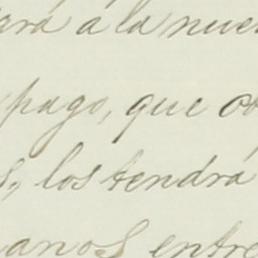 ará á la nue
pago, que o
s, los tendrá
anos entre